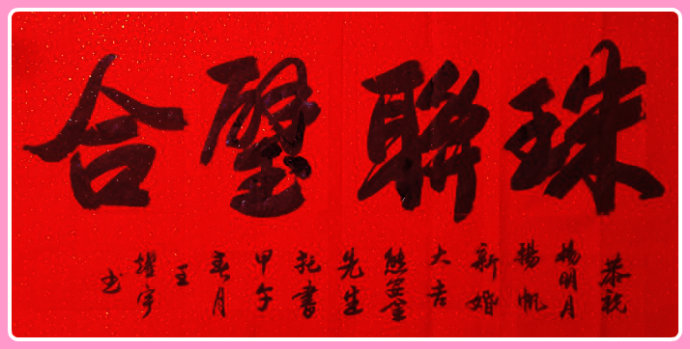 珠聯璧合
恭祝
楊明月
楊帆
新婚
大吉
熊
先生
托書
甲午
春月
王
耀宇
书